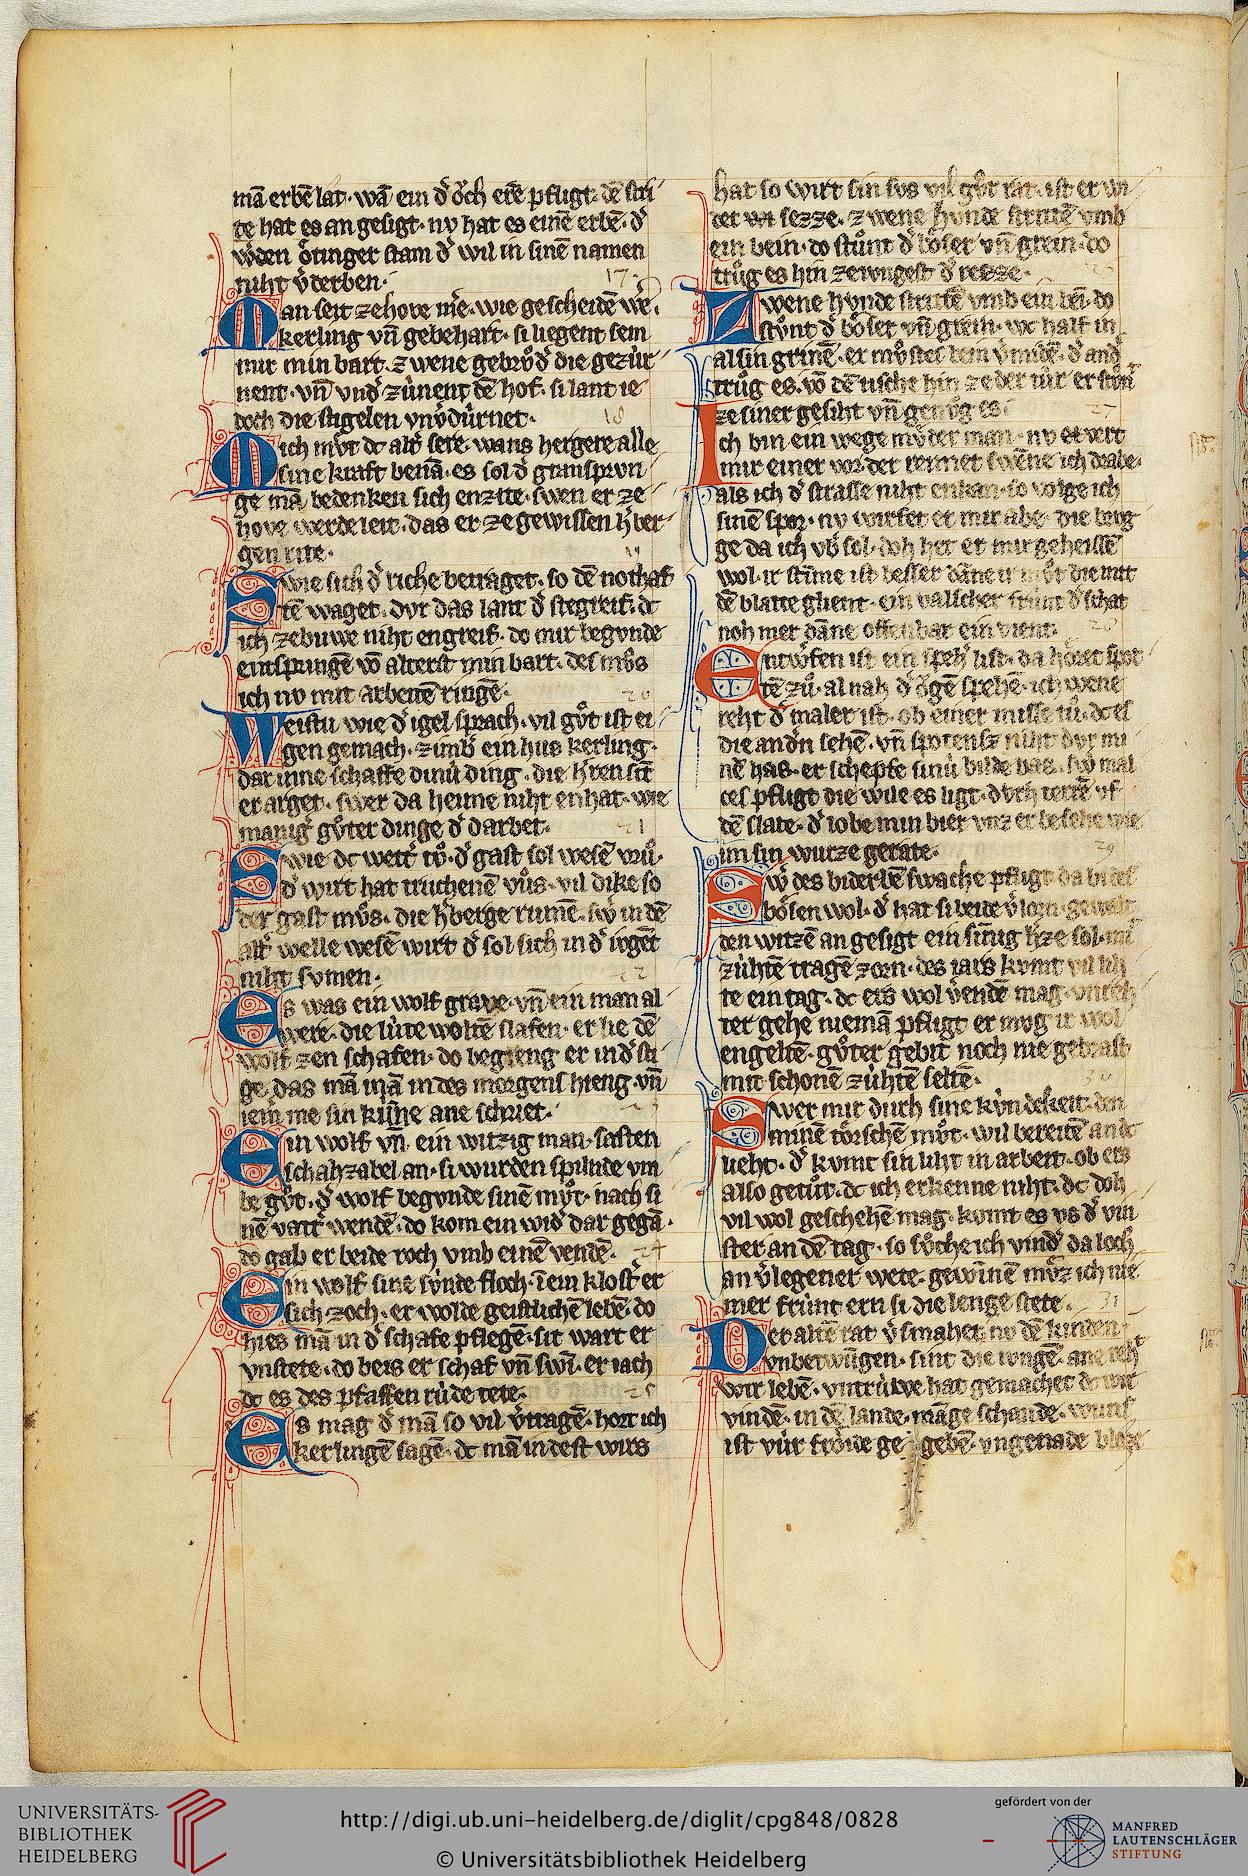 mā erbē lat. wā ein d' ŏch erē pfligt. dē stri
te hat es an gesigt. nv hat es einē erbē. d'
vō den ŏtinger stam d' wil in sinē namen
niht v'derben.
17.
Man seit ze hove m'e. wie gescheidē w'e.
kerling vn̄ gebehart. si liegent sem
mir min bart. zwene gebrůd' die gezür
nent. vn̄ vnd' zůnent dē hof. si lant ie
doch die stigelen vnv'důrnet.
18
Mich můt dc alt' sere. wans hergere alle
sine kraft benā. es sol d' gransprvn
ge mā bedenken sich enzite. swen er ze
hove werde leit. das er ze gewissen h'ber
gen rite.
19
Swie sich d' riche betraget. so dē nothaf
tē waget. dvr das lant d' stegreif. dc
ich ze buwe niht engreif. do mir begvnde
entspringē vō alterst min bart. des mv̊s
ich nv mit arbeitē ringē.
20
Weistu wie d' igel sprach. vil gůt ist ei
gen gemach. zimb' ein hus kerling.
dar inne schaffe dinů ding. die h'ren sīt
er arget. swer da heime niht enhat. wie
manig' gůter dinge d' darbet.
21
Swie dc wett' tů. d' gast sol wesē vrů.
d' wirt hat truchenē vůs. vil dike so
der gast mv̊s. die h'berge rumē. sw' in dē
alt' welle wesē wirt d' sol sich in d' iugēt
niht svmen.
22
Es was ein wolf grave. vn̄ ein man al
were. die lůte woltē slafen. er lie dē
wolf zen schafen. do begieng er in d' sti
ge. das mā inā in des morgens hieng. vn̄
iem' me sin kůñe ane schriet.
23
Ein wolf vn̄ ein witzig man. sasten
schahzabel an. si wurden spilnde vm
be gůt. d' wolf begvnde sinē můt. nach si
nē vatt' wendē. do kom ein wid' dar gegā.
do gab er beide roch vmb einē vendē.
24
Ein wolf sine sv̊nde floch. ī ein klost' er
sich zoch. er wolde geistlichē lebē. do
hies mā in d' schafe pflegē. sit wart er
vnstete. do beis er schaf vn̄ swī. er iach
dc es des pfaffen růde tete.
25
Es mag d' mā so vil v'tragē. hort ich
kerlingē sagē. dc mā in dest wirs
hat so wirt sin svs vil gůt rat. ist er wi
der sezze. zwene hvnde strittē vmb
ein bein. do stůnt d' bŏser vn̄ grein. do
trůg es hin zewgest d' rezze.
26
Zwene hvnde strittē vmb ein bei. do
stůnt d' bŏser vn̄ grein. wc half in
al sin grinē. er mv̊stez bein v'midē. d' and'
trůg es. vō dē tische hin ze der tůr er stůnt
ze siner gesiht vn̄ genůg es.
27
Ich bin ein wege mv̊der man. nv et vert
mir einer vor. der rennet swēne ich drabe.
als ich d' strasse niht enkan. so volge ich
sinē spor. nv wirfet er mir abe die brug
ge da ich vb' sol. doh het er mir geheissē
wol. ir stīme ist besser dāne ir můt die mit
dē blatte glient. ein valscher frůnt d' schat
noh mer dāne offenbar ein vient.
28
Entwŏrfen ist ein speh' list. da hŏret spot
tē zů. al nah d' ŏgē spehē. ich wene
reht d' maler ist. ob einer misse tů. dc es
die and'n sehē. vn̄ spotensz niht dvr mi
nē has. er schepfe sinů bilde bas. sw' mal
ces pfligt die wile es ligt. dvrh terrē vf
dē slate. d' lobe min bier vnz er besehe wie
im sin wurze gerate.
29
Sw' des biderbē swache pfligt da bi des
bŏsen wol. d' hat si beide v'lorn. gewalt
den witzē an gesigt ein sinnig h'ze sol. mit
zůhtē tragē zorn. des iars kvmt vil lih
te ein tag. dc ers wol v'endē mag. vnreh
ter gehe niemā pfligt er mvg ir wol
engeltē. gůter gebit noch nie gebrast
mit schonē zůhtē seltē.
30
Swer mir durh sine kv̊ndekeit. den
minē tŏrschē můt. wil bereitē an dc
lieht. d' kvmt sin liht in arbeit. ob ers
also getůt. dc ich erkenne niht. dc doh
vil wol geschehē mag. kvmt es vs d' vin
ster an dē tag. so sv̊che ich vind' da loch
an v'legener wete. gewinnē mv̊z ich nie
mer frůnt ern si die lenge stete.
31
Der altē rat v'smahet nv dē kinden
vnbetwūgen. sint die iungē. ane reht
wir lebē. vntrůwe hat gemachet dc wir
vindē. in dē lande. māge schande. vnns
ist vůr frŏide ge geben. vngenade bloze
UNIVERSITÄTS-
BIBLIOTHEK
HEIDELBERG
http://digi.ub.uni-heidelberg.de/diglit/cpg848/0828
© Universitätsbibliothek Heidelberg
gefördert von der
MANFRED
LAUTENSCHLÄGER
STIFTUNG